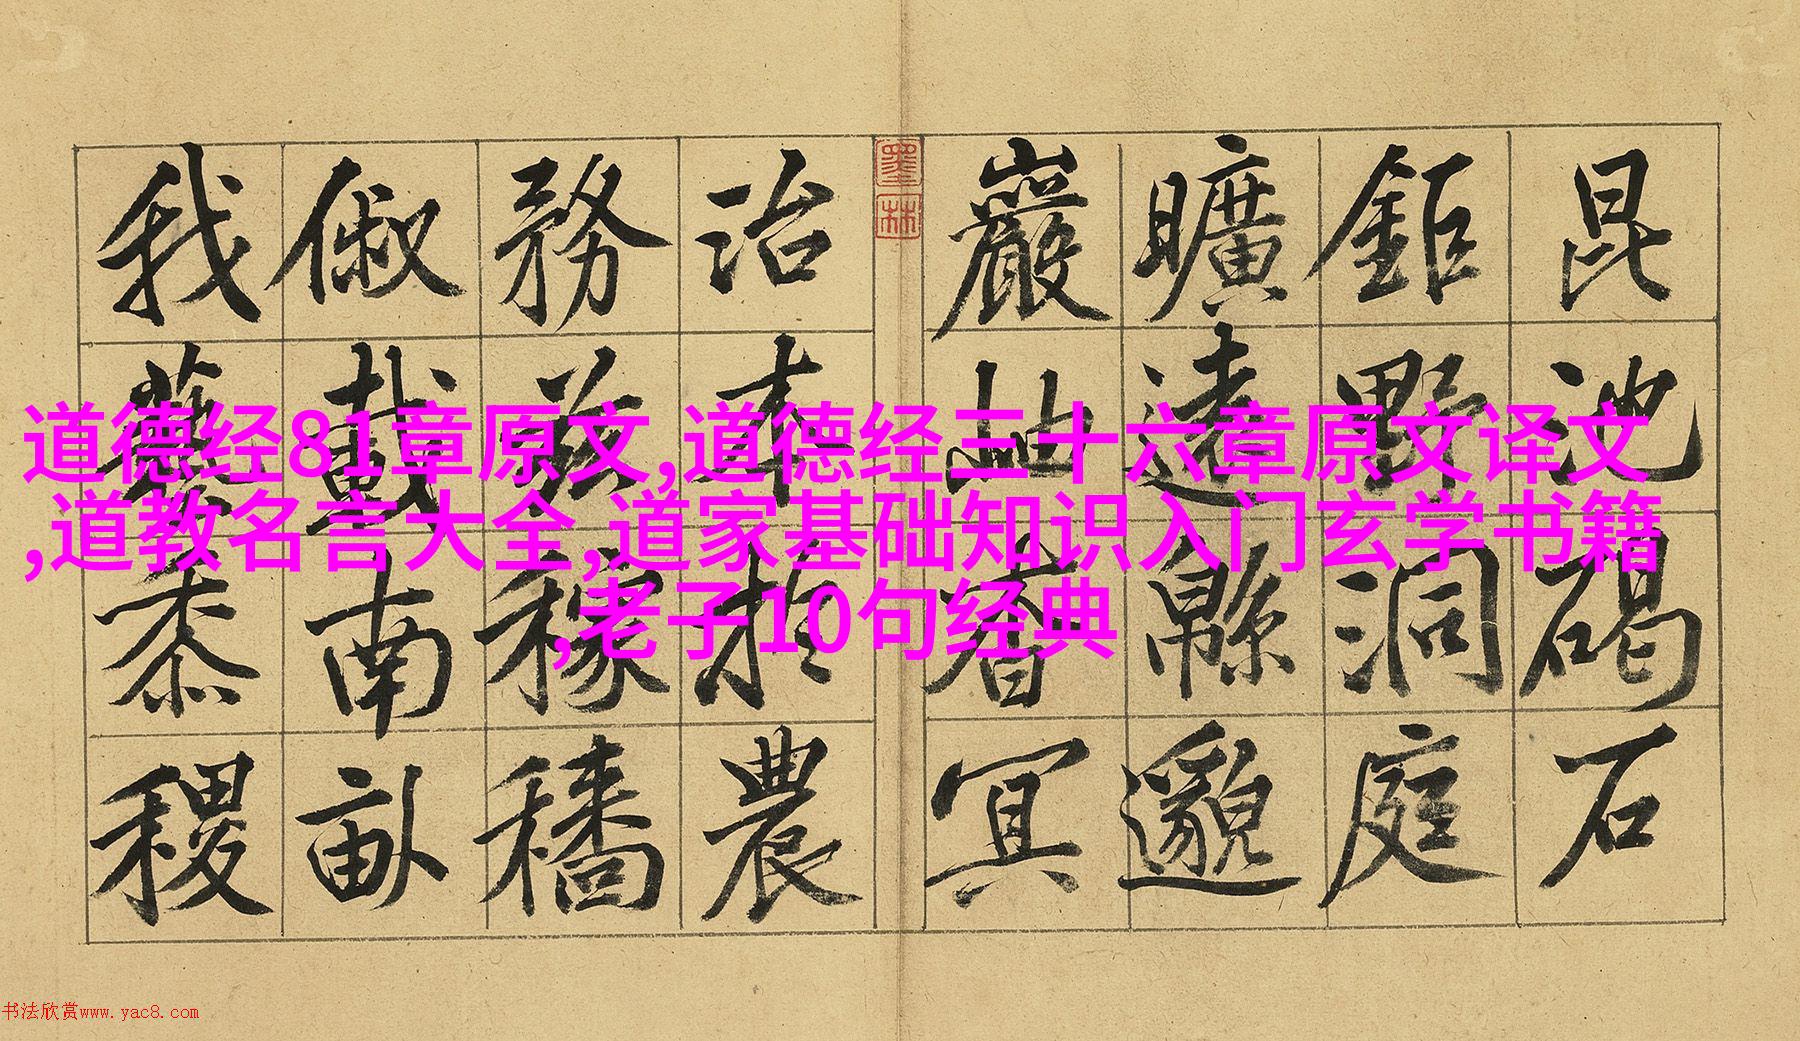 昆池碣石
鉅野洞庭
曠遠緜邈
巖岫杳冥
治本於農
務茲稼穡
俶載南畝
我藝黍稷
墨林
道德经81章原文,道德经三十六章原文译文
,道教名言大全,道家基础知识入门玄学书籍
,老子10句经典
书法欣赏www.yac8.com